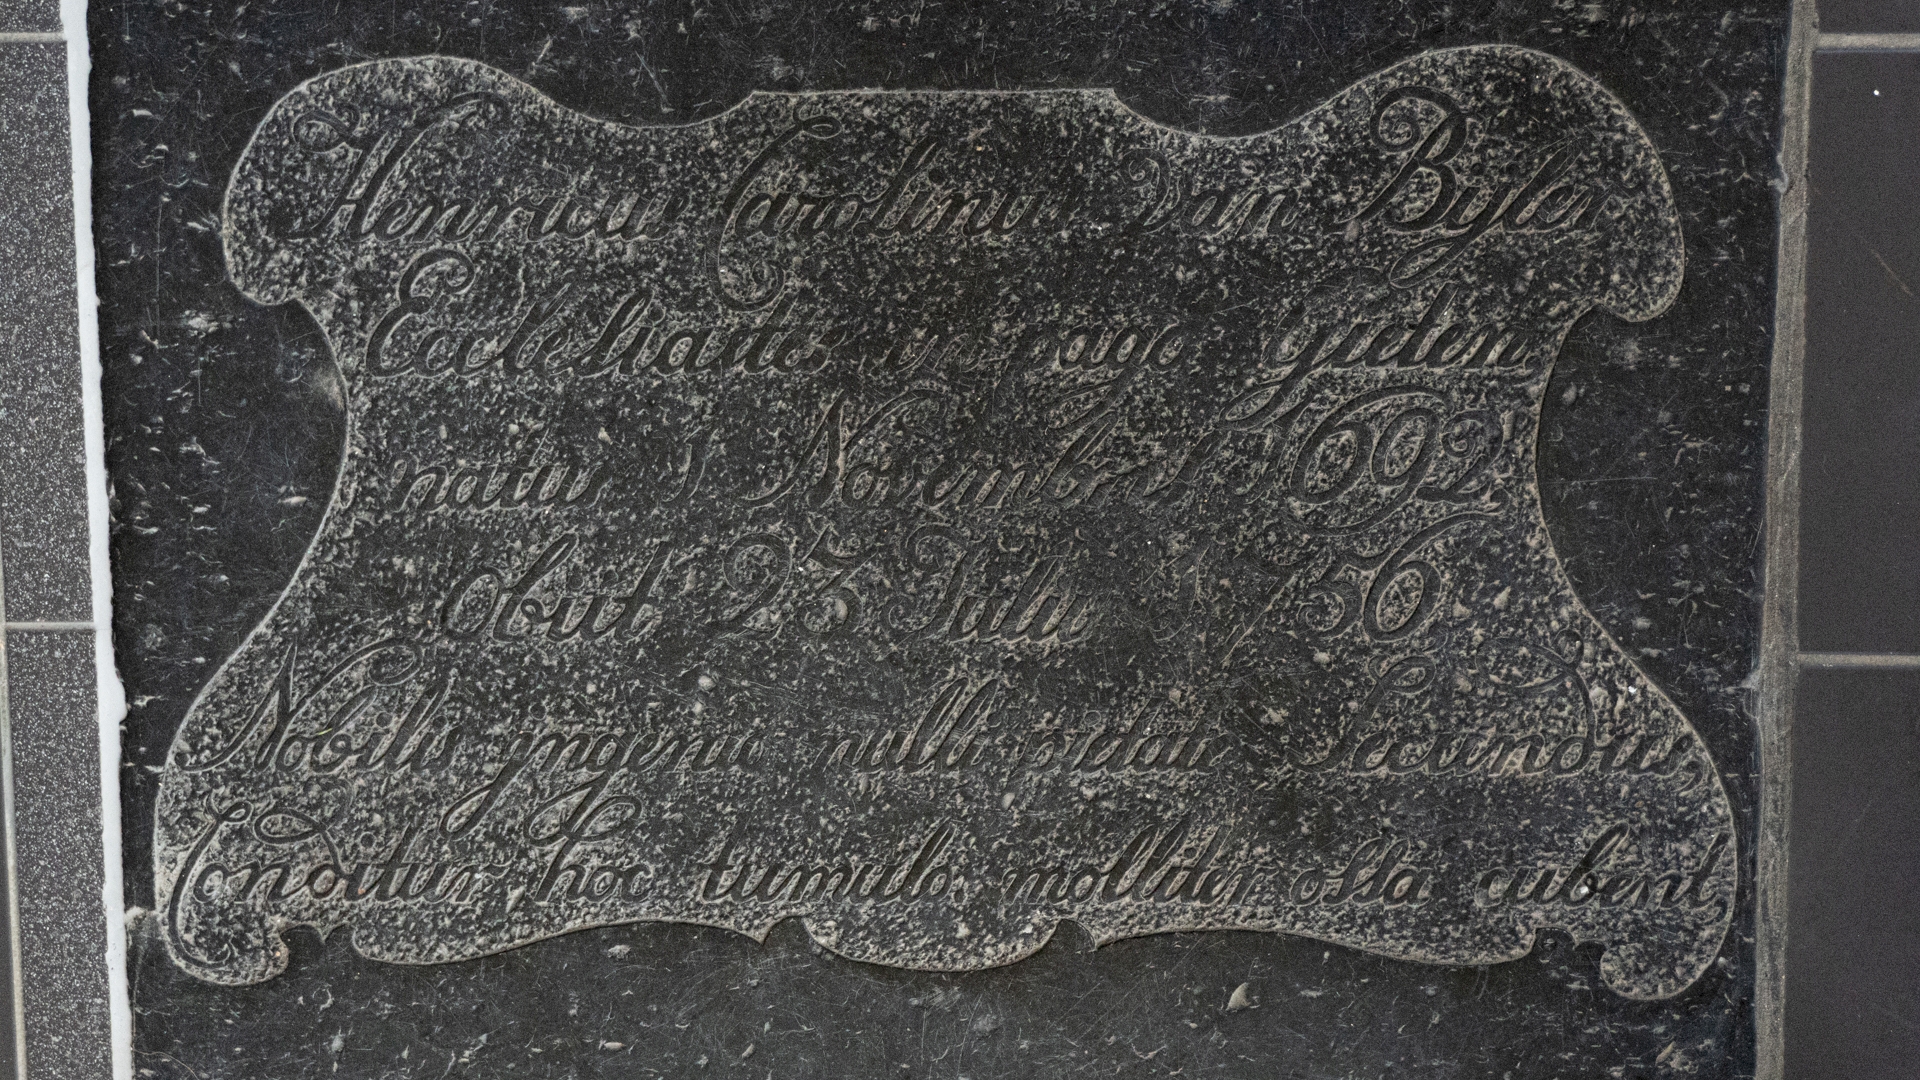 Henricus Carolinus Van Byler
Ecclesiastes in pago Gieten
natus 1 Novembris 1692
obiit 23 Julii 1756
Nobilis jngenio nulli pietate Secundus,
Conditur hoc tumulo molliter ossa cubent